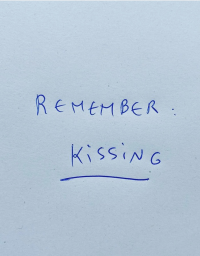 REMEMBER:
KiSSiNG